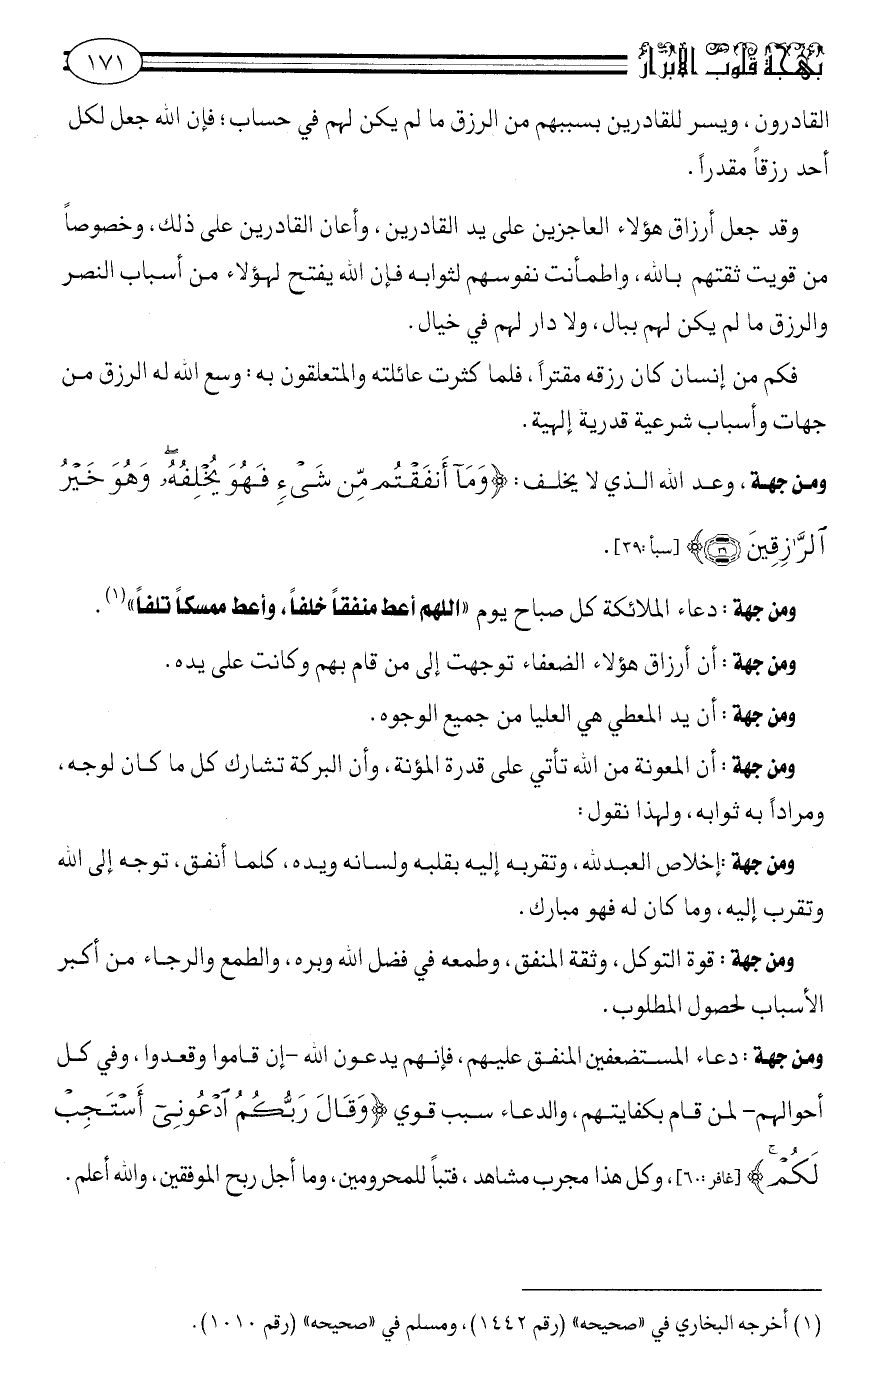 بهجة قلوب الأبرار
١٧١
القادرون، ويسر للقادرين بسببهم من الرزق ما لم يكن لهم في حساب؛ فإن الله جعل لكل
أحد رزقاً مقدراً.
وقد جعل أرزاق هؤلاء العاجزين على يد القادرين، وأعان القادرين على ذلك، وخصوصاً
من قويت ثقتهم بالله، واطمأنت نفوسهم لثوابه فإن الله يفتح لهؤلاء من أسباب النصر
والرزق ما لم يكن لهم ببال، ولا دار لهم في خيال.
فكم من إنسان كان رزقه مقتراً، فلما كثرت عائلته والمتعلقون به: وسع الله له الرزق من
جهات وأسباب شرعية قدرية إلهية.
ومن جهة، وعد الله الذي لا يخلف: ﴿وَمَآ أَنفَقْتُم مِّن شَىْءٍ فَهُوَ يُخْلِفُهُۥۖ وَهُوَ خَيْرُ
ٱلرَّٰزِقِينَ ٣٩﴾ [سبأ:٣٩].
ومن جهة: دعاء الملائكة كل صباح يوم «اللهم أعط منفقاً خلفاً، وأعط ممسكاً تلفاً»(١).
ومن جهة: أن أرزاق هؤلاء الضعفاء توجهت إلى من قام بهم وكانت على يده.
ومن جهة: أن يد المعطي هي العليا من جميع الوجوه.
ومن جهة: أن المعونة من الله تأتي على قدرة المؤنة، وأن البركة تشارك كل ما كان لوجه،
ومراداً به ثوابه، ولهذا نقول:
ومن جهة :إخلاص العبدلله، وتقربه إليه بقلبه ولسانه ويده، كلما أنفق، توجه إلى الله
وتقرب إليه، وما كان له فهو مبارك.
ومن جهة: قوة التوكل، وثقة المنفق، وطمعه في فضل الله وبره، والطمع والرجاء من أكبر
الأسباب لحصول المطلوب.
ومن جهة: دعاء المستضعفين المنفق عليهم، فإنهم يدعون الله -إن قاموا وقعدوا، وفي كل
أحوالهم- لمن قام بكفايتهم، والدعاء سبب قوي ﴿وَقَالَ رَبُّكُمُ ٱدْعُونِىٓ أَسْتَجِبْ
لَكُمْۚ﴾ [غافر:٦٠]، وكل هذا مجرب مشاهد، فتباً للمحرومين، وما أجل ربح الموفقين، والله أعلم.
(١) أخرجه البخاري في «صحيحه» (رقم ١٤٤٢)، ومسلم في «صحيحه» (رقم ١٠١٠).